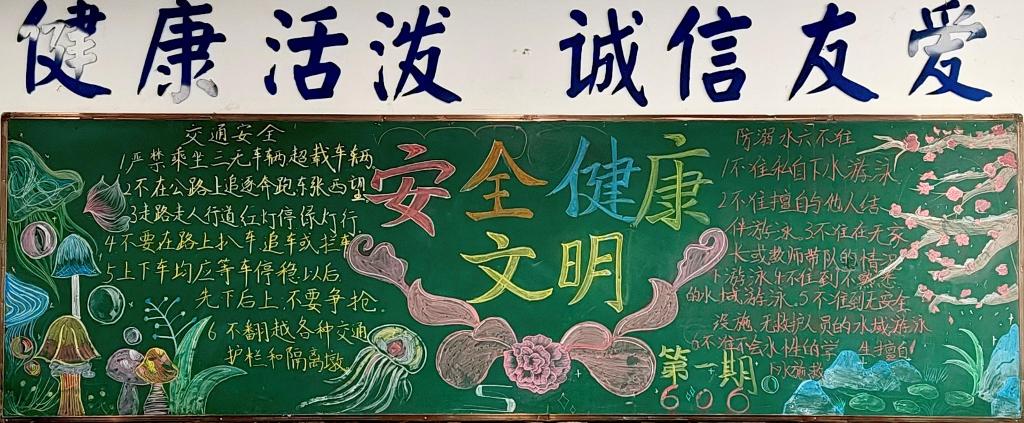 健康活泼 诚信友爱
交通安全
1严禁乘坐三无车辆超载车辆
2不在公路上追逐奔跑东张西望
3走路走人行道红灯停绿灯行
4不要在路上扒车追车或拦车
5上下车均应等车停稳以后
先下后上.不要争抢.
6不翻越各种交通
护栏和隔离墩.
安全健康
文明
第一期
606
防溺水六不准
1不准私自下水游泳
2不准擅自与他人结
伴游泳.3不准在无家
长或教师带队的情况
下游泳4不准到不熟悉
的水域游泳.5不准到无安全
设施.无救护人员的水域游泳
6不准不会水性的学生擅自
下水施救